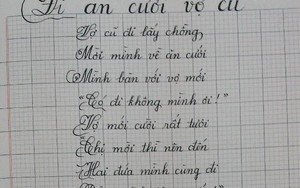 Đi ăn cưới vợ cũ
Vợ cũ đi lấy chồng,
Mời mình về ăn cưới
Mình bàn với vợ mới
"Có đi không, mình ơi!"
Vợ mới cười rất tươi
"Chị mời thì nên đến
Hai đứa mình cùng đi